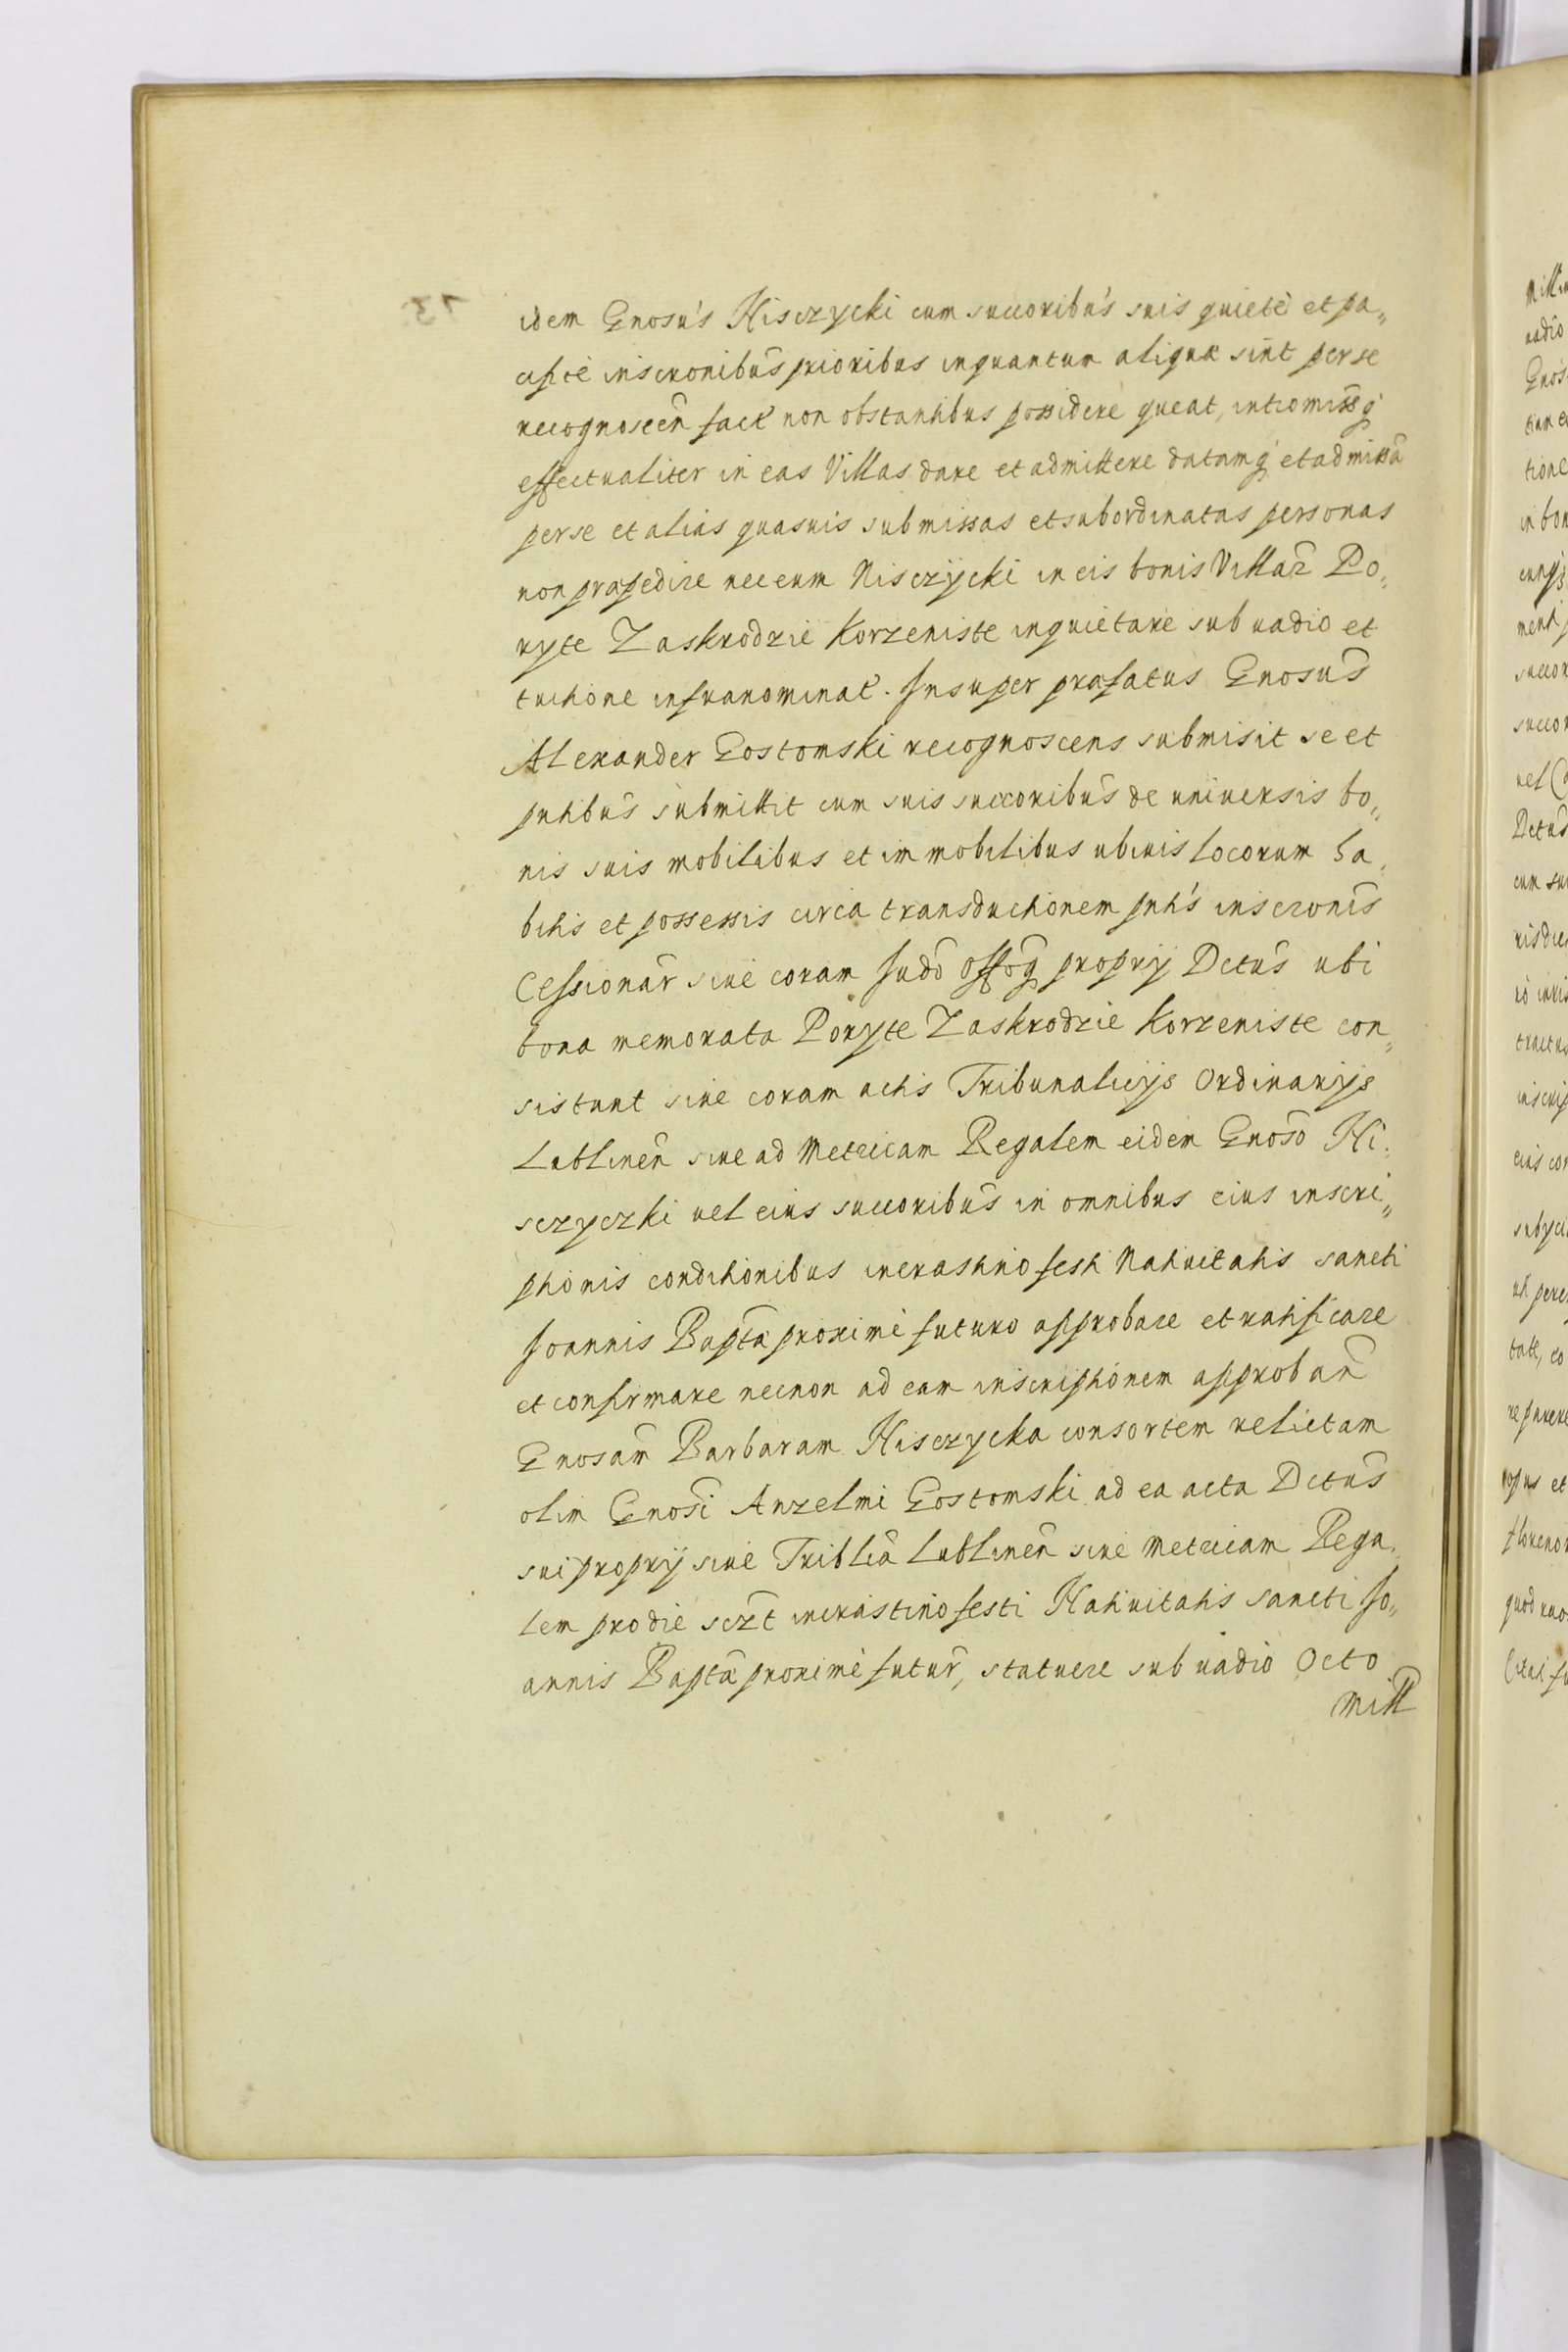 idem Gnosus Hisczycki cum succoribus suis quietè et pa„
cificè inscronibus prioribus inquantum aliquæ sint per se
recognoscen̄ fact̄ non obstantibus possidere queat, intromissq̀
effectualiter in eas Villas dare et admittere datamq̀ et admissā
per se et alias quasuis submissas et subordinatas personas
non præpedire nec eum Nisczycki in eis bonis Villar̄ Po„
ryte Zaskrodzie Korzeniste inquietare sub uadio et
tuitione infranominat̄. Insuper præfatus Gnosus
Alexander Gostomski recognoscens submisit se et
pntibus submittit cum suis succoribus de uniuersis bo„
nis suis mobilibus et immobilibus ubiuis locorum ha„
bitis et possessis circa transductionem pntis inscronis
Cessionar̄ siue coram Iudō Offōq̀ proprij Dctus ubi
bona memorata Poryte Zaskrodzie Korzeniste con„
sistunt siue coram actis Tribunalicijs Ordinarijs
Lublinen̄ siue ad Metricam Regalem eidem Gnoso Hi„
sczyczki uel eius succoribus in omnibus eius inscri„
ptionis conditionibus in crastino festi Natiuitatis sancti
Joannis Baptā proximè futuro approbare et ratificare
et confirmare necnon ad eam inscriptionem approban̄
Gnosam Barbaram Hisczycka consortem relictam
olim Gnosi Anzelmi Gostomski ad ea acta Dctus
sui proprij siue Triblia Lublinen̄ siue Metricam Rega„
lem pro die sczt in crastino festi Natiuitatis sancti Jo„
annis Baptā proximè futur̄, statuere sub uadio Octo
Mill